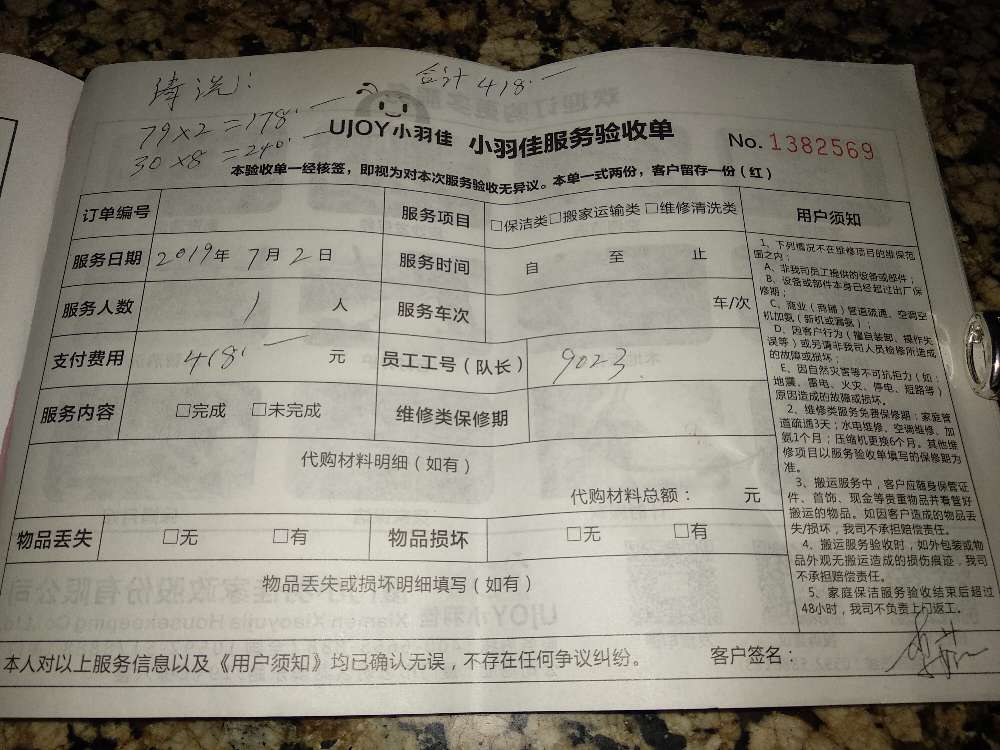 清洗:
合计 418.一
79×2=178.一
30×8=240.一
UJOY小羽佳 小羽佳服务验收单
No. 1382569
本验收单一经核签，即视为对本次服务验收无异议。本单一式两份，客户留存一份（红）
订单编号 服务项目 □保洁类□搬家运输类 □维修清洗类
服务日期 2019年 7月 2日 服务时间 自 至 止
服务人数 1 人 服务车次 车/次
支付费用 418.一 元 员工工号（队长） 9023
服务内容 □完成 □未完成 维修类保修期
代购材料明细（如有）
代购材料总额： 元
物品丢失 □无 □有 物品损坏 □无 □有
物品丢失或损坏明细填写（如有）
用户须知
1、下列情况不在维修项目的维保范
围之内：
A、非我司员工提供的设备或部件；
B、设备或部件本身已经超过出厂保
修期；
C、商业（商铺）管道疏通、空调空
机加氨（新机或漏氨）；
D、因客户行为（擅自装卸、操作失
误等）或另请非我司人员检修所造成
的故障或损坏；
E、因自然灾害等不可抗拒力（如：
地震、雷电、火灾、停电、短路等）
原因造成的故障或损坏。
2、维修类服务免费保修期：家庭管
道疏通3天；水电维修、空调维修、加
氨1个月；压缩机更换6个月。其他维
修项目以服务验收单填写的保修期为
准。
3、搬运服务中，客户应随身保管证
件、首饰、现金等贵重物品并看管好
搬运的物品。如因客户造成的物品丢
失/损坏，我司不承担赔偿责任。
4、搬运服务验收时，如外包装或物
品外观无搬运造成的损伤痕迹，我司
不承担赔偿责任。
5、家庭保洁服务验收结束后超过
48小时，我司不负责上门返工。
本人对以上服务信息以及《用户须知》均已确认无误，不存在任何争议纠纷。 客户签名：